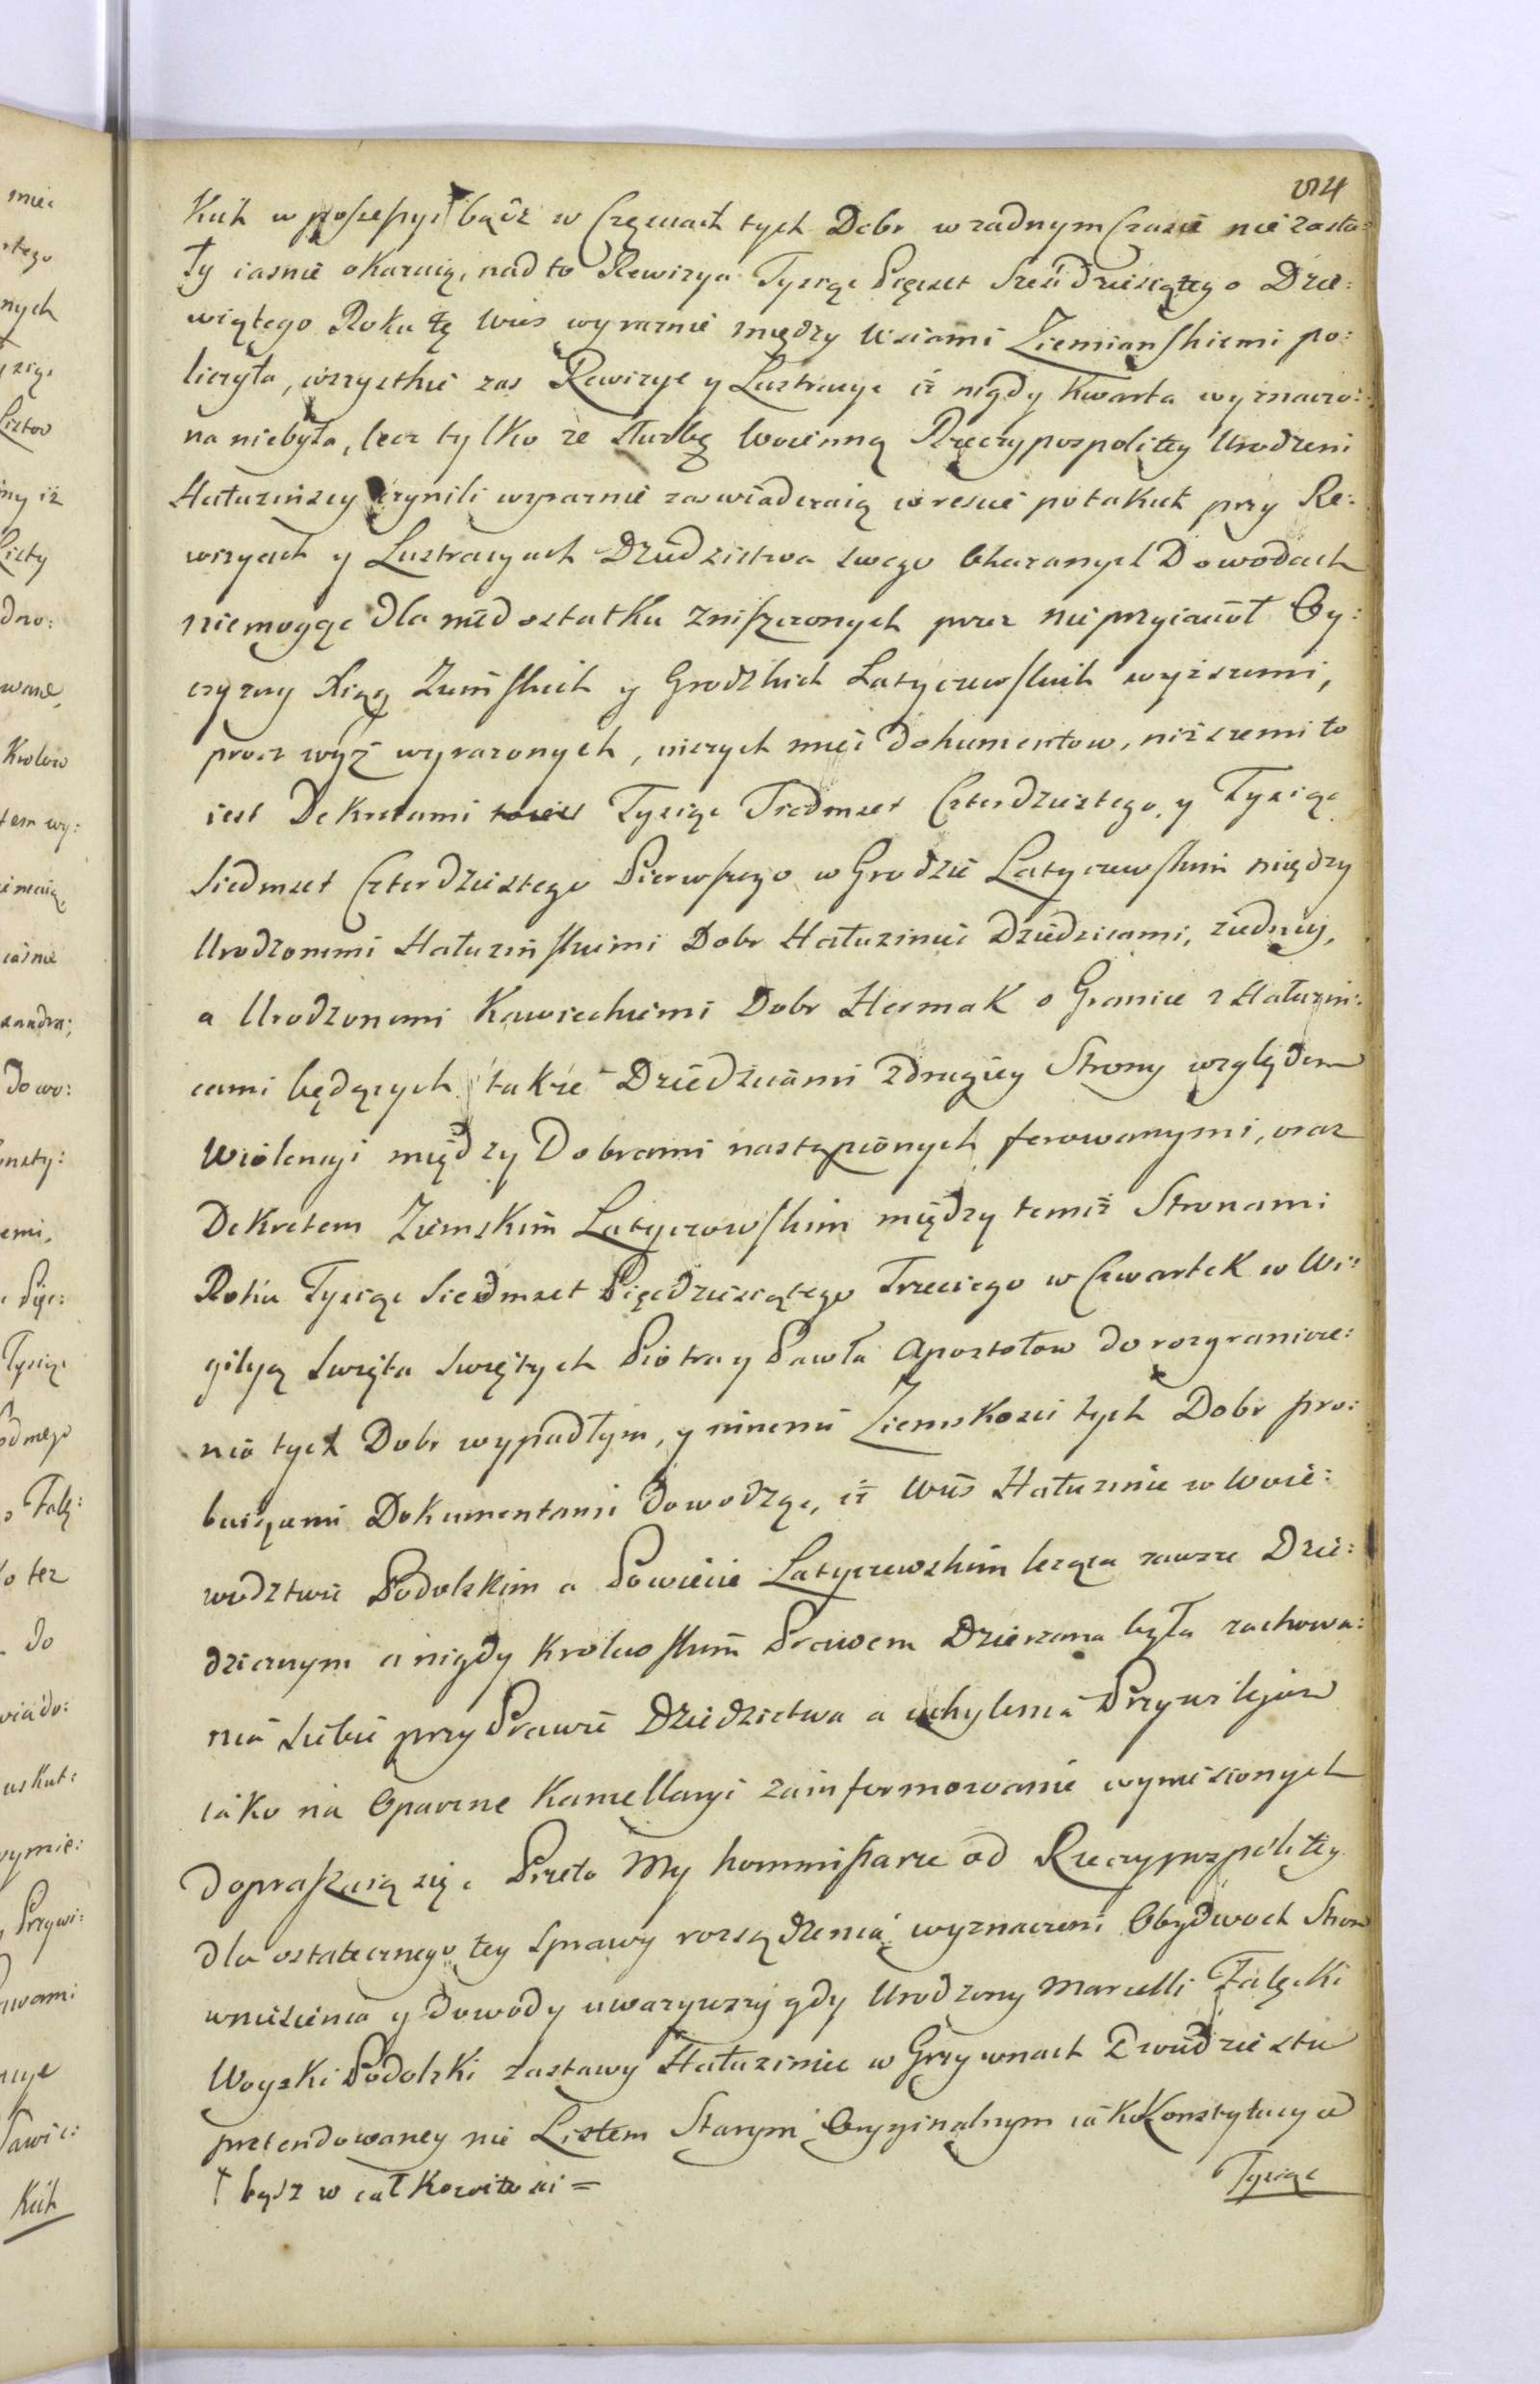 kich w possessyi † bądź w Częsciach tych Dobr w zadnym Czasie nie zosta:
ły iasnie okazuią, nad to Rewizya Tysiąc Pięcset Sześćdziesiątego Dzie:
wiątego Roku tę Wies wyraznie między Wsiami Ziemianskiemi po:
liczyła, wszystkie zas Rewizye y Lustracye iż nigdy Kwarta wyznaczo:
na niebyła, lecz tylko ze służbę Woienną Rzeczypospolitey Urodzeni
Hałuzinscy czynili wyraznie zaswiadczaią wrescie po takich przy Re:
wizyach y Lustracyach Dziedzictwa swego Okazanych Dowodach
niemogąc dla niedostatku zniszczonych przez nieprzyiacioł Oy:
czyzny Xiąg Ziemskich y Grodzkich Latyczewskich wyższemi,
procz wyż wyrazonych, niczych mieć dokumentow, niższemi to
iest Dekretami Tysiąc Siedmset Czterdziestego y Tysiąc
Siedmset Czterdziestego Pierwszego w Grodzie Latyczewskim między
Urodzonemi Hałuzinskiemi Dobr Hałuziniec Dziedzicami, z iedney,
a Urodzonemi Kawieckiemi Dobr Hermak o Granice z Hałuzin:
cami będących także Dziedzicami z drugiey Strony względem
Wiolencyi między Dobrami nastąpionych ferowanymi, oraz
Dekretem Ziemskim Latyczowskim między temiż Stronami
Roku Tysiąc Siedmset Pięcdziesiątego Trzeciego w Czwartek w Wi:
gilyą Swięta Swiętych Piotra y Pawła Apostołow do rozgranicze:
nia tych Dobr wypadłym, y innemi Ziemskosci tych Dobr pro:
buiącemi Dokumentami dowodząc, iż Wieś Hałuzince w Woie:
wodztwie Podolskim a Powiecie Latyczewskim leząca zawsze Dzie:
dzicznym a nigdy krolewskim Prawem Dzierzana była zachowa:
nia siebie przy Prawie Dziedzictwa a uchylenia Przywilejow
iako na Opaczne Kancellaryi zainformowanie wyniesionych
dopraszaią się. Przeto My Kommissarze od Rzeczypospolitey
dla ostatecznego tey Sprawy rozsądzenia wyznaczeni Obydwoch Stron
wniesienia y dowody uwazywszy gdy Urodzony Marcelli Falęcki
Woyski Podolski zastawy Hałuziniec w Grzywnach Dwudziestu
pretendowaney nie Listem Starym Oryginalnym iako Konstytucya
† bądź w całkowitosci = Tysiąc